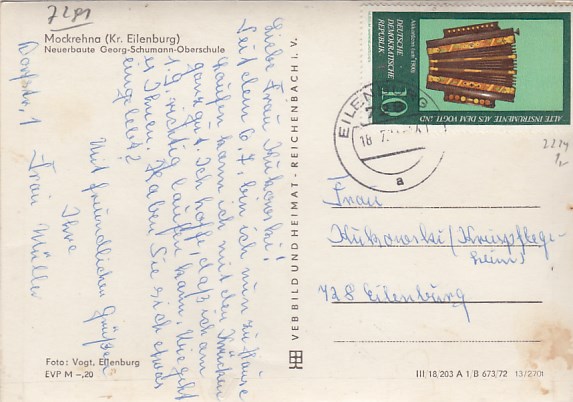 7291
Mockrehna (Kr. Eilenburg)
Neuerbaute Georg-Schumann-Oberschule
Dorfstr. 1
Liebe Frau Kukowski!
Seit dem 6.7. bin ich nun zu Hause
laufen kann ich mit den Krücken
ganz gut. Ich hoffe, daß ich am
19. richtig laufen kann. Wie geht
es Ihnen. Haben Sie sich etwas
eingelebt?
Mit freundlichen Grüßen
Ihre
Frau Müller
Foto: Vogt, Eilenburg
EVP M -,20
VEB BILD UND HEIMAT · REICHENBACH I. V.
Akkordeon (um 1900)
DEUTSCHE
DEMOKRATISCHE
REPUBLIK
10
ALTE INSTRUMENTE AUS DEM VOGTLAND
EILENBURG
a
2224
Frau
Kukowski/Kreispflege-
heim
728 Eilenburg
III/18/203 A 1/B 673/72 13/2701